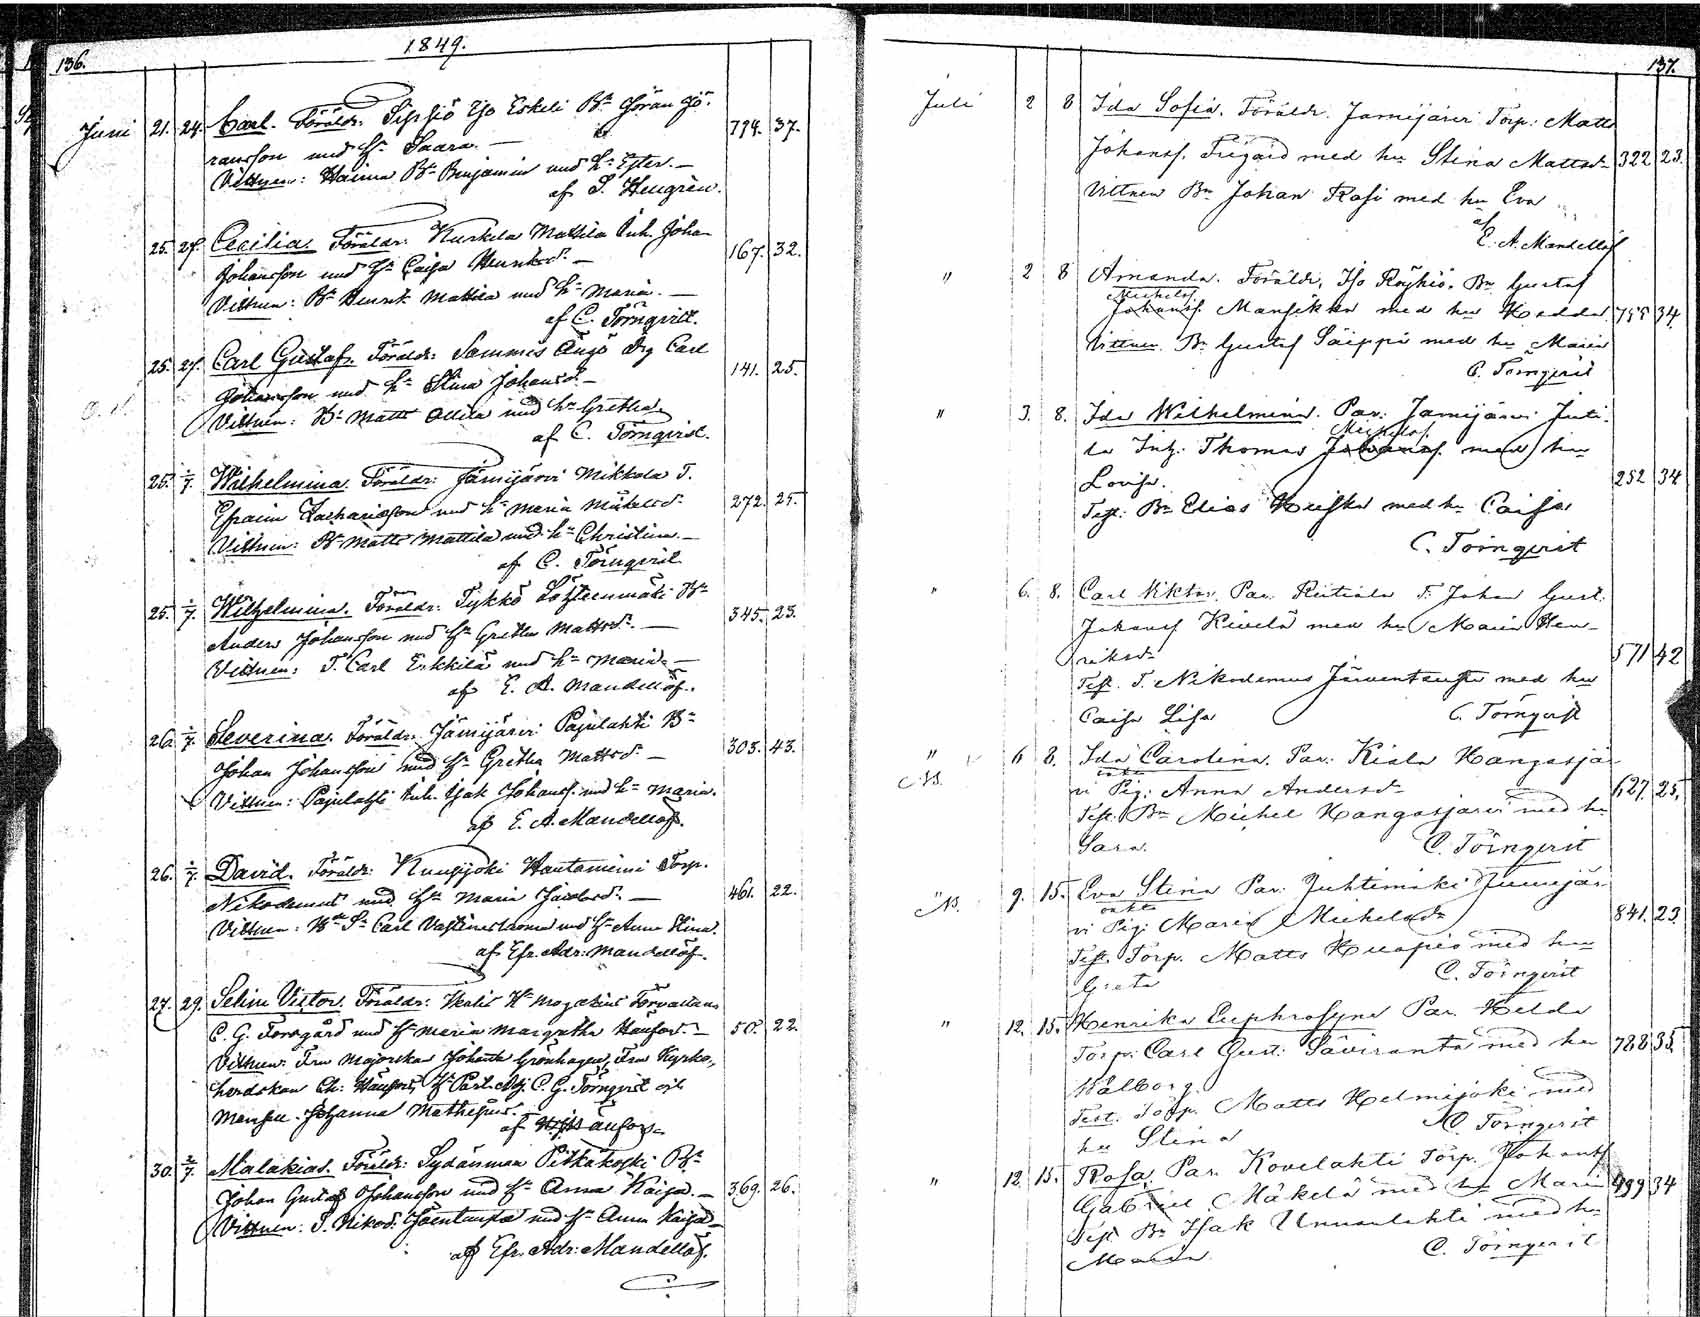 136.
1849.
Juni 21. 24. Carl. Föräldr. Iso Eskeli Bn Göran Jö- 794. 37.
ransson med Hn Saara. —
Vittnen: Haima Bn Benjamin med hn Ester. —
af S. Hengrén.
25. 27. Cecilia. Föräldr: Kurkela Mattila Inh. Johan 167. 32.
Johansson med Hn Caisa Henriksd. —
Vittnen: Bn Henrik Mattila med hn Maria. —
af C. Törnqvist.
25. 27. Carl Gustaf. Föräldr: Sammis Ängs Drg Carl 141. 25.
Johansson med hn Stina Johansd. —
Vittnen: Bn Matts Ollila med hn Gretha.
af C. Törnqvist.
25. 1/7. Wilhelmina. Föräldr: Jämijärvi Mikkola T. 272. 25.
Efraim Zachariasson med hn Maria Mickelsd.
Vittnen: Bn Matts Mattila med hn Christina. —
af C. Törnqvist.
25. 1/7. Wilhelmina. Föräldr: Tykkö Lähteenmäki Bn 345. 23.
Anders Johansson med Hn Gretha Mattsd. —
Vittnen: T. Carl Erkkilä med hn Maria. —
af E. A. Mandellöf.
26. 1/7. Severina. Föräldr. Jämijärvi Pajulahti Bn 303. 43.
Johan Johansson med Hn Gretha Mattsd. —
Vittnen: Pajulahti Inh. Isak Johanss. med hn Maria.
af E. A. Mandellöf.
26. 1/7. David. Föräldr: Kuusjoki Hautaniemi Torp. 461. 22.
Nikodemus med Hn Maria Jacobsd. —
Vittnen: Carl med Hn Anna Stina.
af Efr. Adr: Mandellöf.
27. 29. Selim Victor. Föräldr: Ikalis Kn Magazins Förvaltaren 50. 22.
C. G. Forsgård med Hn Maria Margretha Hänfors. —
Vittnen: Fru Majorskan Johanna Grönhagen, Fru Kyrko-
herdskan Ch: Hänfors, C. G. Törnqvist och
Johanna Mathesius.
af Hänfors
30. 2/7. Malakias. Föräldr: Sydänmaa Pitkäkoski Bn 369. 26.
Johan Gustaf Johansson med Hn Anna Kaisa. —
Vittnen: T. Nikod: Järventausta med Hn Anna Kaisa
af Efr. Adr: Mandellöf.
137.
Juli 2 8 Ida Sofia. Föräldr. Jämijärvi Torp: Matts
Johanss. Tregård med hu Stina Mattsd 322 23.
Vittnen Bn Johan Rasi med hu Eva
af
E. A. Mandellöf
" 2 8 Amanda. Föräldr, Iso Röyhiö, Bn Gustaf
Michelss
Johanss. Mansikka med hu Hedda 755 34.
Vittnen Bn Gustaf Säippi med hu Maria
C. Törnqvist
" 3. 8. Ida Wilhelmina. Par: Jämijärvi Juti-
Michelss
la Inh. Thomas Johanss. med hu
Lovisa. 252 34
Test: Bn Elias Kuiska med hu Caisa
C. Törnqvist
" 6. 8. Carl Viktor. Par. Riitiala T. Johan Gust.
Johanss Kivelä med hu Maria Hen-
riksd 571 42
Test. T. Nikodemus Järventausta med hu
Caisa Lisa C. Törnqvist
" 6 8. Ida Carolina. Par: Kiala Kangasjär-
NB.
oäkta
vi Pig: Anna Andersd 627. 25.
Test. Bn Michel Kangasjärvi med hu
Sara. C. Törnqvist
" NB. 9. 15. Eva Stina Par: Juhtimäki Jumejär-
oäkta
vi Pig: Maria Michelsd 841. 23.
Test. Torp. Matts Kuapio med hu
Greta C. Törnqvist
" 12. 15. Henrika Euphrosyne Par. Kelda
Torp: Carl Gust: Säviranta med hu 788 35.
Wålborg.
Test. Torp. Matts Kelmijoki med
hu Stina C. Törnqvist
" 12 15. Rosa. Par. Kovelahti Torp. Johanss
Gabriel Mäkelä med hu Maria 499 34
Test Bn Isak Unnanlahti med hu
Maria C. Törnqvist